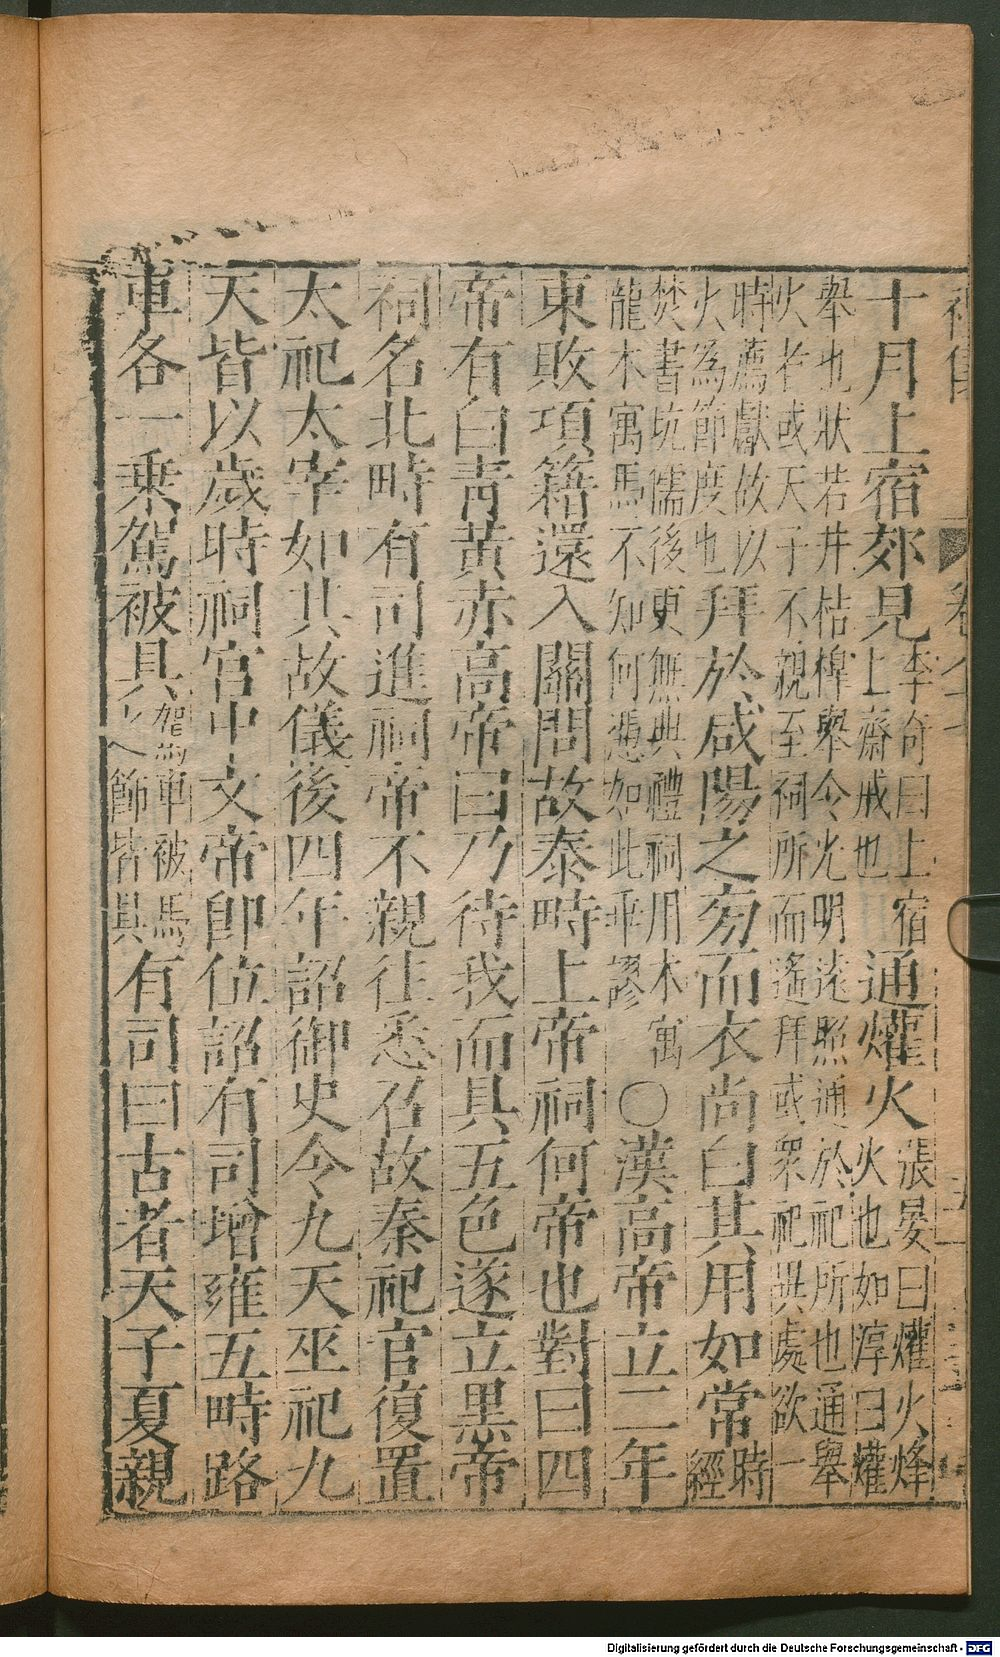 十月上宿郊見李奇曰上宿上齋戒也通爟火張晏曰爟火烽火也如淳曰爟
舉也狀若井桔槹舉令光明遠照通於祀所也通舉火者或天子不親至祠所而遙拜或衆祀異處欲一
時薦獻故以火為節度也拜於咸陽之旁而衣尚白其用如常時經
焚書坑儒後更無典禮祠用木寓龍木寓馬不知何憑如此乖謬〇漢高帝立二年
東敗項籍還入關問故秦時上帝祠何帝也對曰四
帝有白青黃赤高帝曰乃待我而具五色遂立黒帝
祠名北畤有司進祠帝不親往悉召故秦祀官復置
太祀太宰如其故儀後四年詔御史令九天巫祀九
天皆以歲時祠宮中文帝即位詔有司增雍五畤路
車各一乘駕被具駕車被馬之節皆具有司曰古者天子夏親
Digitalisierung gefördert durch die Deutsche Forschungsgemeinschaft - DFG